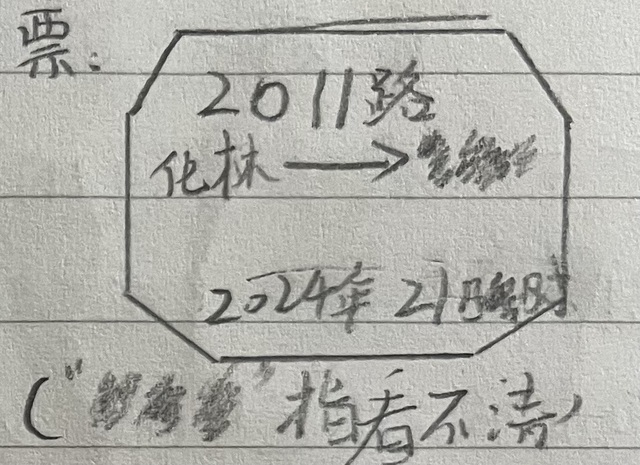 票:
2011路
化林 →
2024年 21日 时
(" " 指看不清)